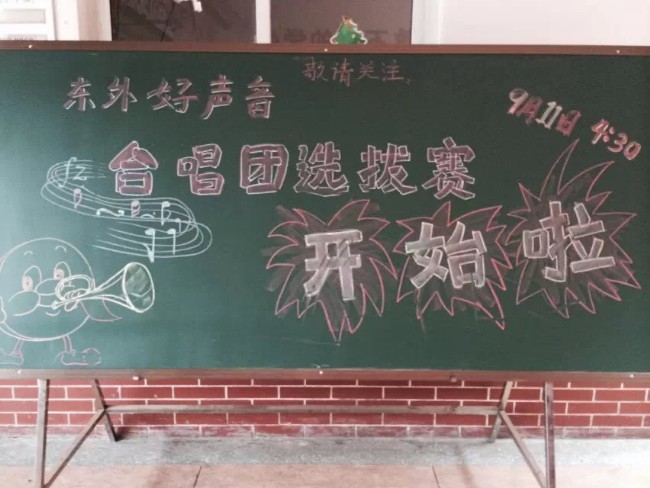 敬请关注。
东外好声音
9月11日 4:30
合唱团选拔赛
开始啦